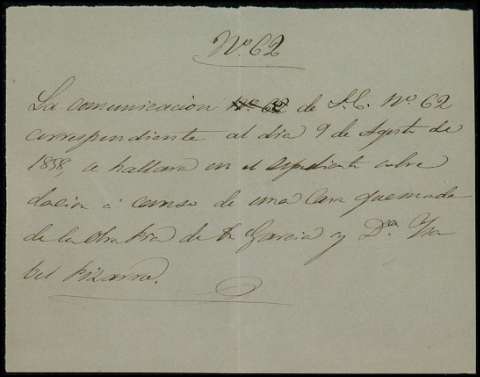 Nº. 62
La comunicacion de S.E. Nº. 62
correspondiente al dia 9 de Agosto de
1858, se hallara en el espediente sobre
dacion á censo de una Casa quemada
de la Obra Pia de Garcia y Dª. Ysa
bel Pizarro.